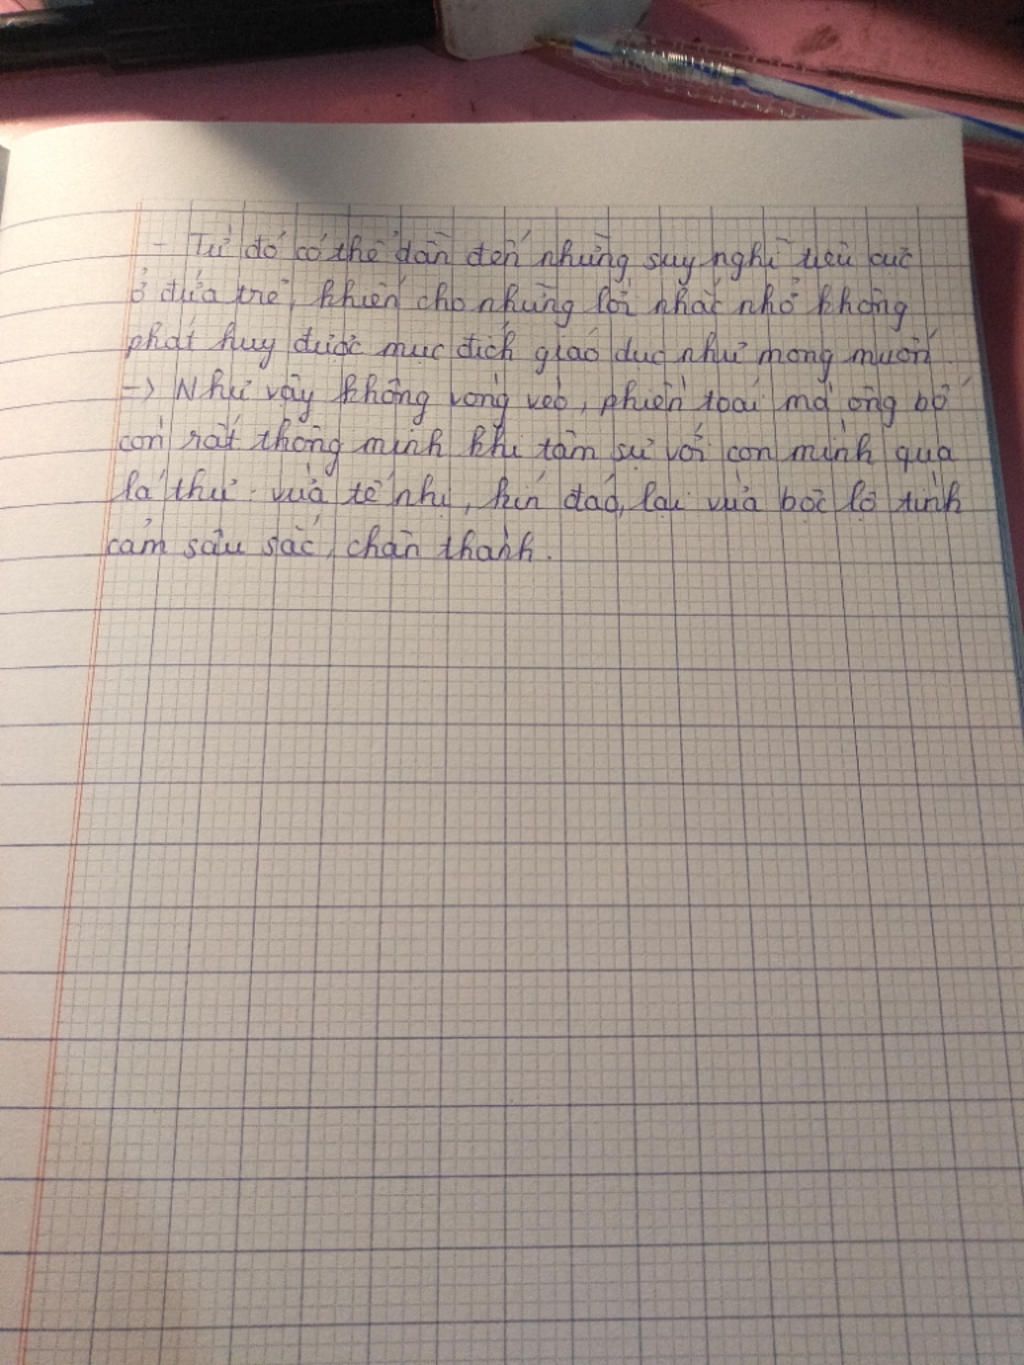 - Từ đó có thể dẫn đến những suy nghĩ tiêu cực
ở đứa trẻ, khiến cho những lời nhắc nhở không
phát huy được mục đích giáo dục như mong muốn.
-> Như vậy không vòng vèo, phiền toái mà ông bố
còn rất thông minh khi tâm sự với con mình qua
lá thư vừa tế nhị, kín đáo, lại vừa bộc lộ tình
cảm sâu sắc, chân thành.